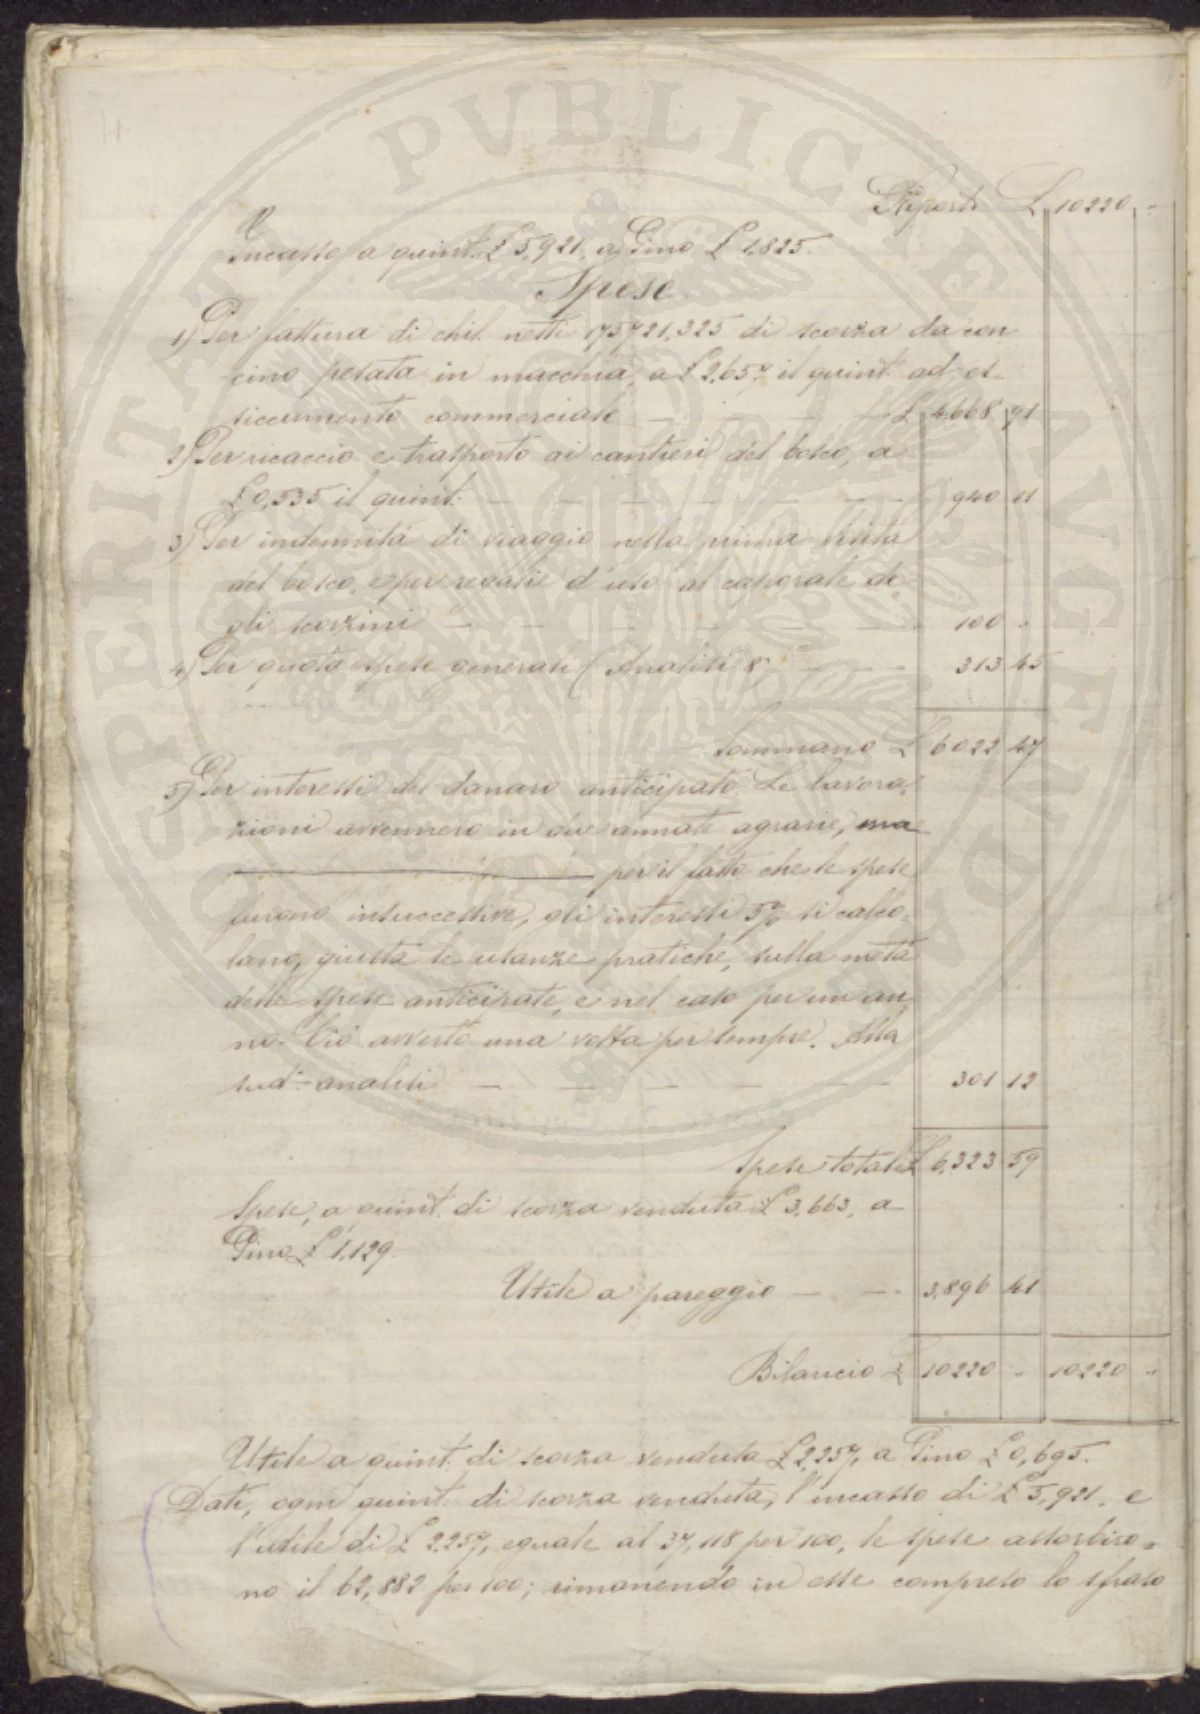 Riporto £ 10220 "
Incasso a quint. £ 5,921, a Pino £ 1,825.
Spese
1) Per fattura di chil. netti 175721,325 di scorza da con
cino pesata in macchia, a £ 2,657 il quint. ad es-
siccamento commerciale — — — — £ 4,668 91
2) Per ricaccio e trasporto ai cantieri del bosco, a
£ 0,535 il quint. — — — — — — 940 11
3) Per indennità di viaggio nella prima visita
del bosco, e per regalie d'uso al caporale de-
gli scorzini — — — — — — 100 "
4) Per quota spese generali (Analisi 8 — — — 313 45
Sommano £ 6022 47
5) Per interessi del danaro anticipato. Le lavora-
zioni avvennero in due annate agrarie, ma
per il fatto che le spese
furono insuccessive, gli interessi 5% si calco-
lano, giusta le usanze pratiche, sulla metà
delle spese anticipate, e nel caso per un an
no. Ciò avverto una volta per sempre. Alla
sud. analisi — — — — — 301 12
Spese totali £ 6,323 59
Spese, a quint. di scorza venduta £ 3,663, a
Pino £ 1,129.
Utile a pareggio — — 3,896 41
Bilancio £ 10220 " 10220 "
Utile a quint. di scorza venduta £ 2,257, a Pino £ 0,695.
Dati, ogni quint. di scorza venduta, l'incasso di £ 5,921, e
l'utile di £ 2,257, eguale al 37,118 per 100, le spese assorbiro-
no il 62,882 per 100; rimanendo in esse compreso lo sfraso
PROSPERITATI PVBLICAE AVGENDAE